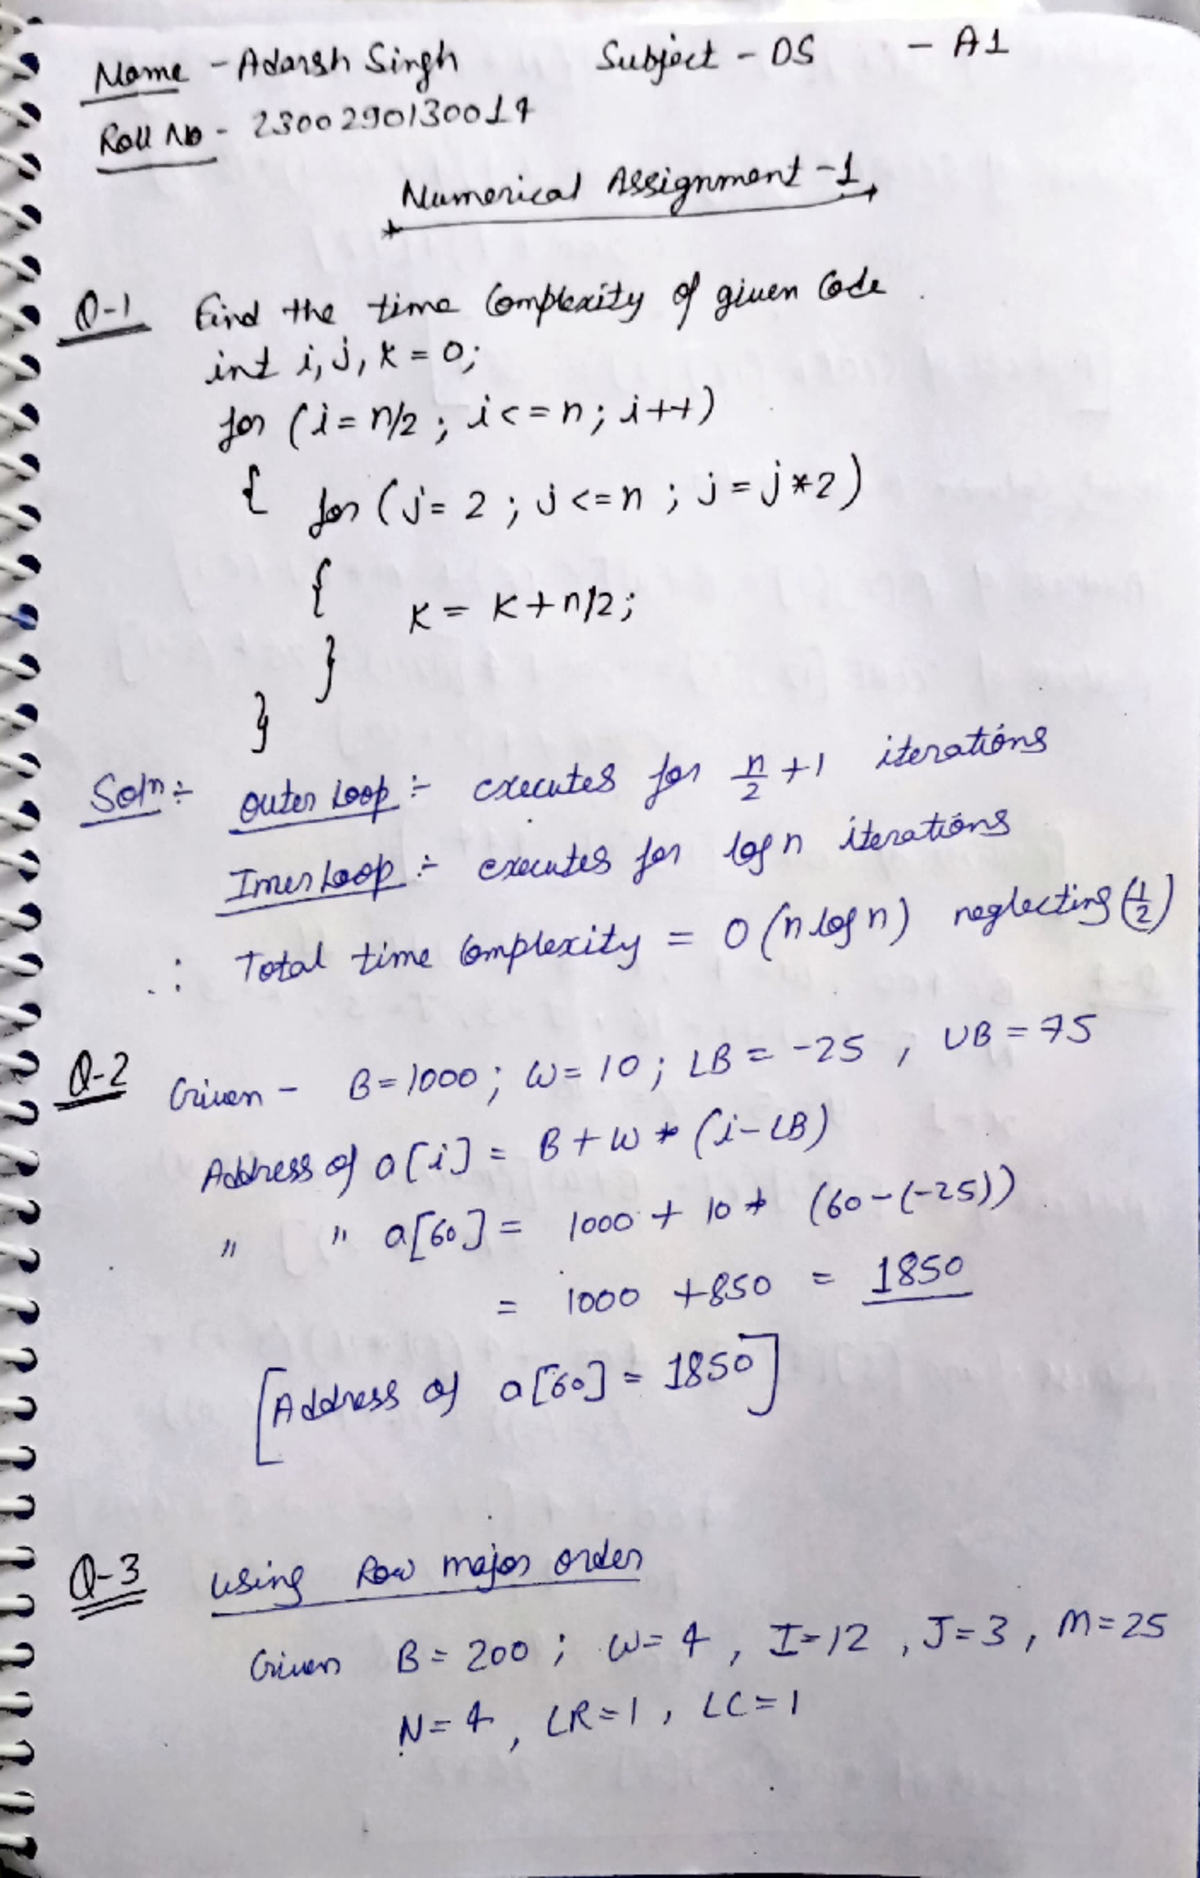 Name - Adarsh Singh Subject - DS - A1
Roll No - 2300290130014
Numerical Assignment - 1
Q-1 Find the time Complexity of given Code
int i, j, k = 0;
for (i = n/2 ; i <= n ; i++)
{ for (j = 2 ; j <= n ; j = j*2)
{ K = K + n/2 ;
}
}
Soln :- Outer Loop :- executes for n/2 + 1 iterations
Inner Loop :- executes for log n iterations
∴ Total time Complexity = O (n log n) neglecting (1/2)
Q-2 Given - B = 1000 ; W = 10 ; LB = -25 , UB = 75
Address of a[i] = B + W * (i - LB)
" " a[60] = 1000 + 10 * (60 - (-25))
= 1000 + 850 = 1850
[Address of a[60] = 1850]
Q-3 Using Row major order
Given B = 200 ; W = 4 , I = 12 , J = 3 , M = 25
N = 4 , LR = 1 , LC = 1